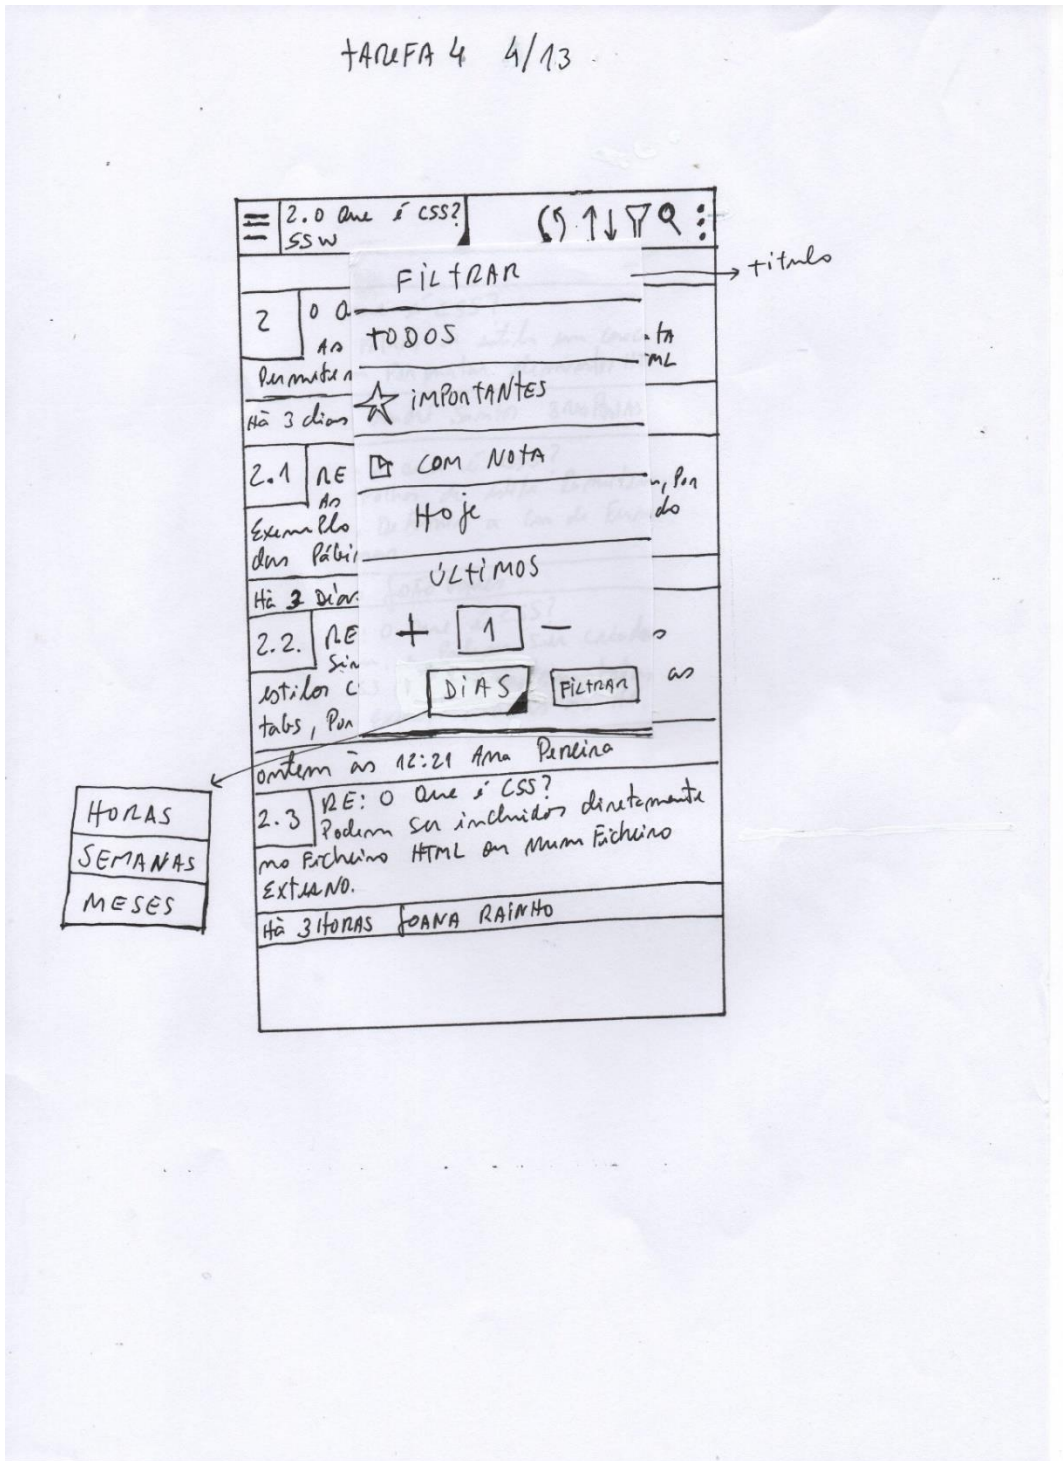 tAREFA 4 4/13
2.0 Que é CSS?
SSW
FiLtRAR
titulo
2 O Q
tODOS
As tA
Permitem ML
iMPORtANtES
Há 3 dias
COM NOtA
2.1 RE
As m, Por
Hoje
Exemplo do
das Pági
ÚLtiMOS
Há 3 Dias
+ 1 -
2.2. RE o
Sim
DiAS FiLtRAR
estilos c as
tags, Por
ontem às 12:21 Ana Pereira
2.3 RE: O Que é CSS?
Podem ser incluidos diretamente
no Ficheiro HTML ou Num Ficheiro
ExtERNO.
Há 3 HORAS JOANA RAiNHO
HORAS
SEMANAS
MESES